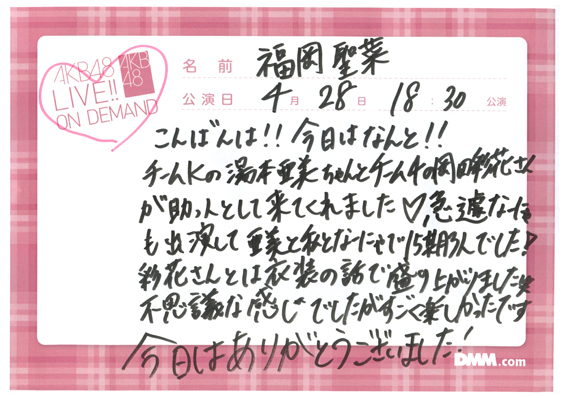 AKB48
LIVE!!
ON DEMAND
AKB
48
名前 福岡聖菜
公演日 4月28日 18:30公演
こんばんは!! 今日はなんと!!
チームKの湯本亜美ちゃんとチーム4の岡田彩花さん
が助っ人として来てくれました♡急遽なーにゃ
も出演して亜美と私となーにゃで15期3人でした!
彩花さんとは衣装の話で盛り上がりました笑
不思議な感じでしたがすごく楽しかったです
今日はありがとうございました!
DMM.com